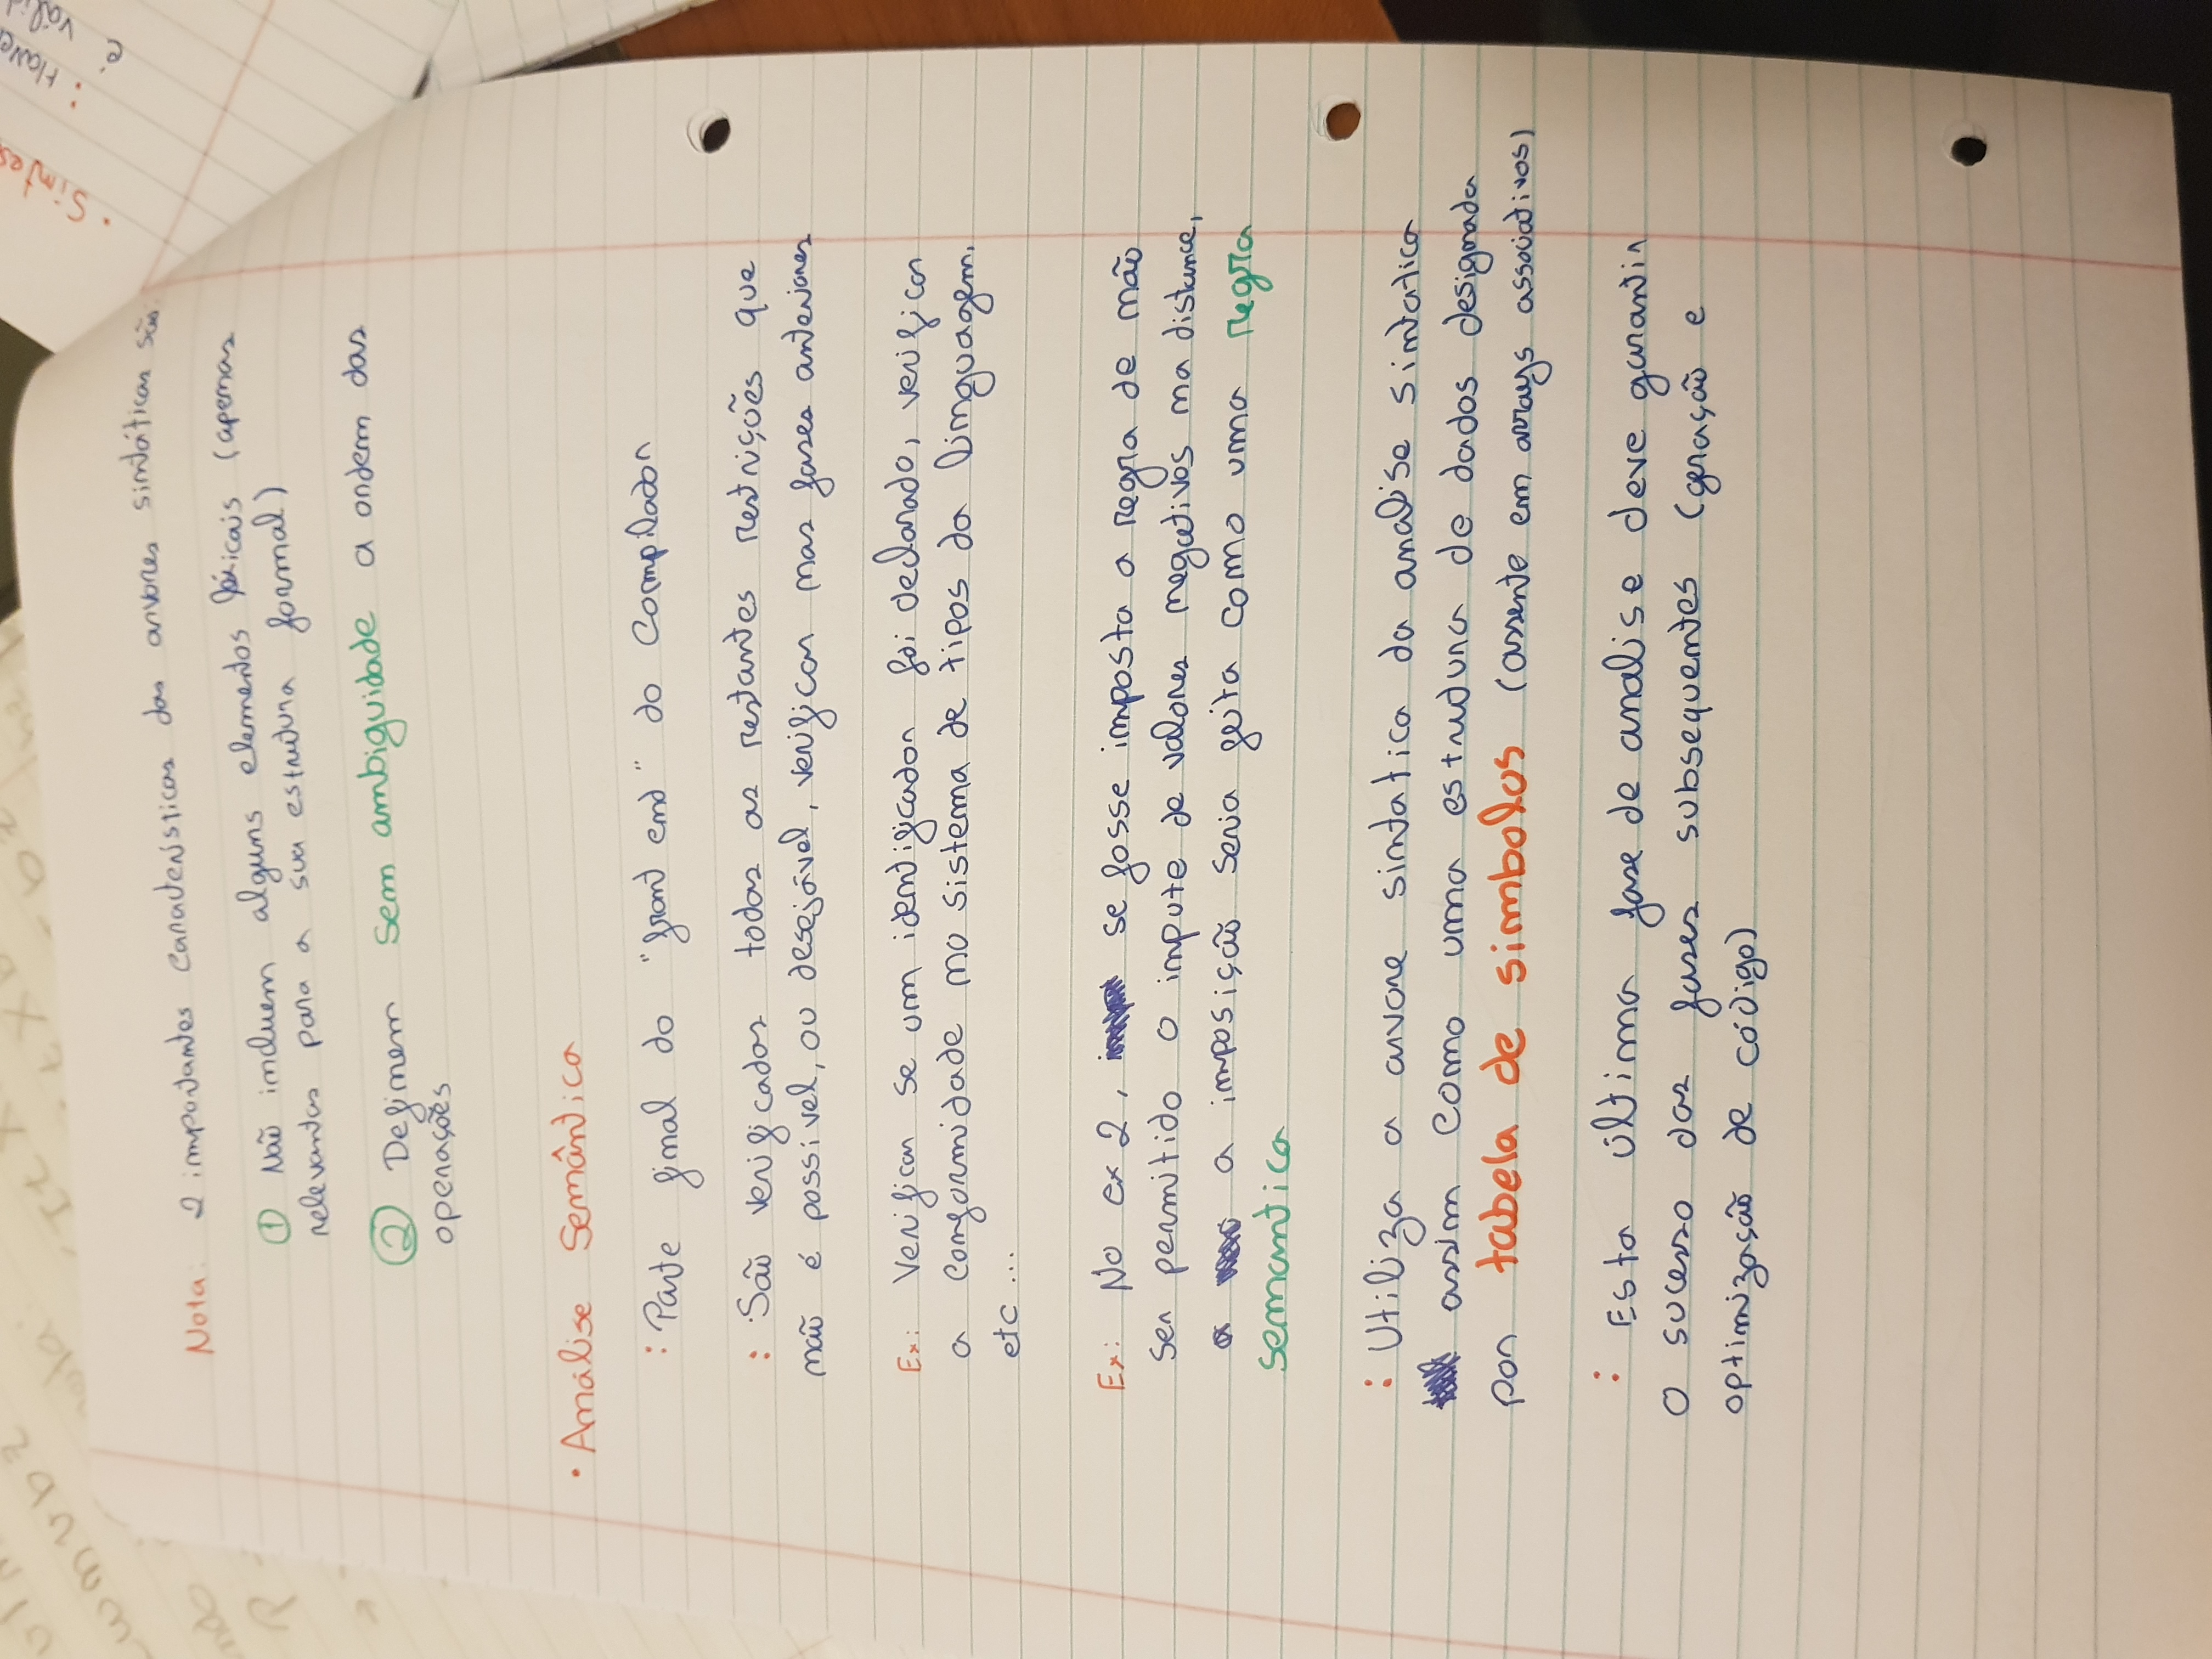 Nota: 2 importantes características das arvores sintáticas são
① Não incluem alguns elementos léxicais (apenas
relevantes para a sua estrutura formal)
② Definem sem ambiguidade a ordem das
operações
• Análise Semântica
: Parte final do "front end" do Compilador
: São verificadas todas as restantes restrições que
não é possível, ou desejável, verificar nas fases anteriores
Ex: Verificar se um identificador foi declarado, verificar
a conformidade no sistema de tipos da linguagem.
etc ...
Ex: No ex 2, se fosse imposta a regra de não
ser permitido o impute de valores negativos na distance,
a imposição seria feita como uma regra
semantica
: Utiliza a arvore sintatica da analise sintatica
assim como uma estrutura de dados designada
por tabela de simbolos (assente em arrays associativos)
: Esta última fase de analise deve garantir
o sucesso das fases subsequentes (geração e
optimização de código)
• Sintes
: Have
é váli